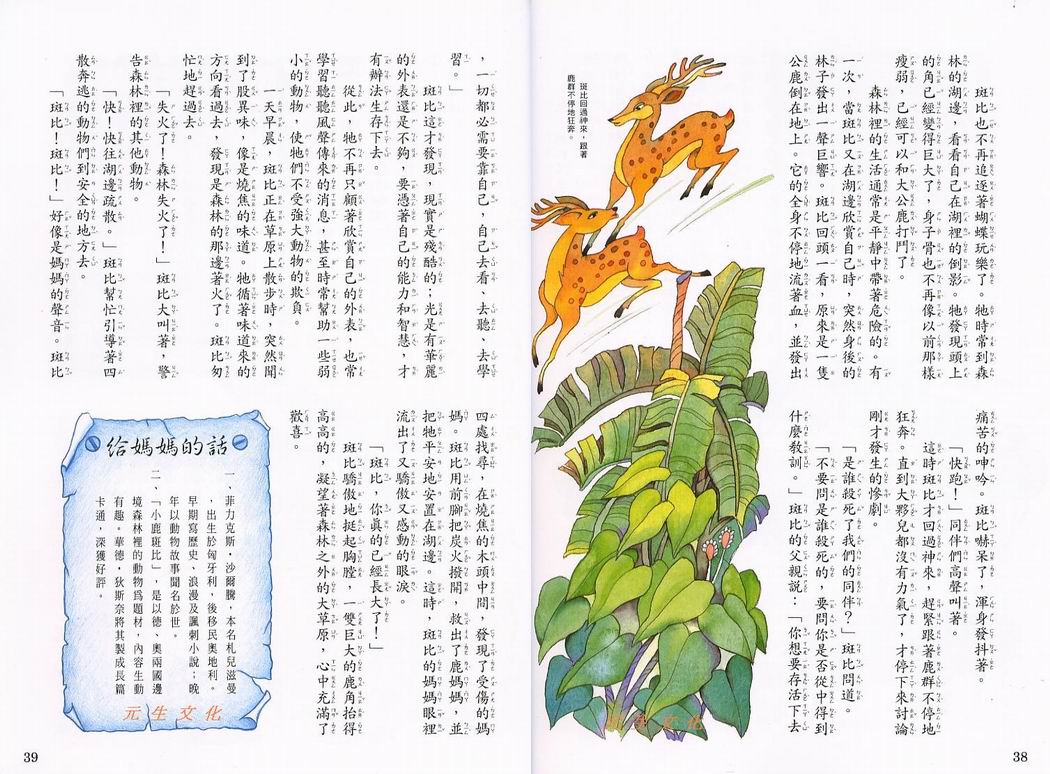 斑比也不再追逐著蝴蝶玩樂了。牠時常到森
林的湖邊，看看自己在湖裡的倒影。牠發現頭上
的角已經變得巨大了，身子骨也不再像以前那樣
瘦弱，已經可以和大公鹿打鬥了。
森林裡的生活通常是平靜中帶著危險的。有
一次，當斑比又在湖邊欣賞自己時，突然身後的
林子發出一聲巨響。斑比回頭一看，原來是一隻
公鹿倒在地上。它的全身不停地流著血，並發出
痛苦的呻吟。斑比嚇呆了，渾身發抖著。
「快跑！」同伴們高聲叫著。
這時斑比才回過神來，趕緊跟著鹿群不停地
狂奔。直到大夥兒都沒有力氣了，才停下來討論
剛才發生的慘劇。
「是誰殺死了我們的同伴？」斑比問道。
「不要問是誰殺死的，要問你是否從中得到
什麼教訓。」斑比的父親說：「你想要存活下去
斑比回過神來，跟著
鹿群不停地狂奔。
元生文化
38
，一切都必需要靠自己，自己去看、去聽、去學
習。」
斑比這才發現，現實是殘酷的；光是有華麗
的外表還是不夠，要憑著自己的能力和智慧，才
有辦法生存下去。
從此，牠不再只顧著欣賞自己的外表，也常
學習聽聽風聲傳來的消息，甚至時常幫助一些弱
小的動物，使牠們不受強大動物的欺負。
一天早晨，斑比正在草原上散步時，突然聞
到了股異味，像是燒焦的味道。牠循著味道來的
方向看過去，發現是森林的那邊著火了。斑比匆
忙地趕過去。
「失火了！森林失火了！」斑比大叫著，警
告森林裡的其他動物。
「快！快往湖邊疏散。」斑比幫忙引導著四
散奔逃的動物們到安全的地方去。
「斑比！斑比！」好像是媽媽的聲音。斑比
四處找尋，在燒焦的木頭中間，發現了受傷的媽
媽。斑比用前腳把炭火撥開，救出了鹿媽媽，並
把牠平安地安置在湖邊。這時，斑比的媽媽眼裡
流出了又驕傲又感動的眼淚。
「斑比，你真的已經長大了！」
斑比驕傲地挺起胸膛，一雙巨大的鹿角抬得
高高的，凝望著森林之外的大草原，心中充滿了
歡喜。
給媽媽的話
一、菲力克斯・沙爾騰，本名札兒滋曼
，出生於匈牙利，後移民奧地利。
早期寫歷史、浪漫及諷刺小說；晚
年以動物故事聞名於世。
二、「小鹿斑比」，是以德、奧兩國邊
境森林裡的動物爲題材，內容生動
有趣。華德・狄斯奈將其製成長篇
卡通，深獲好評。
元生文化
39